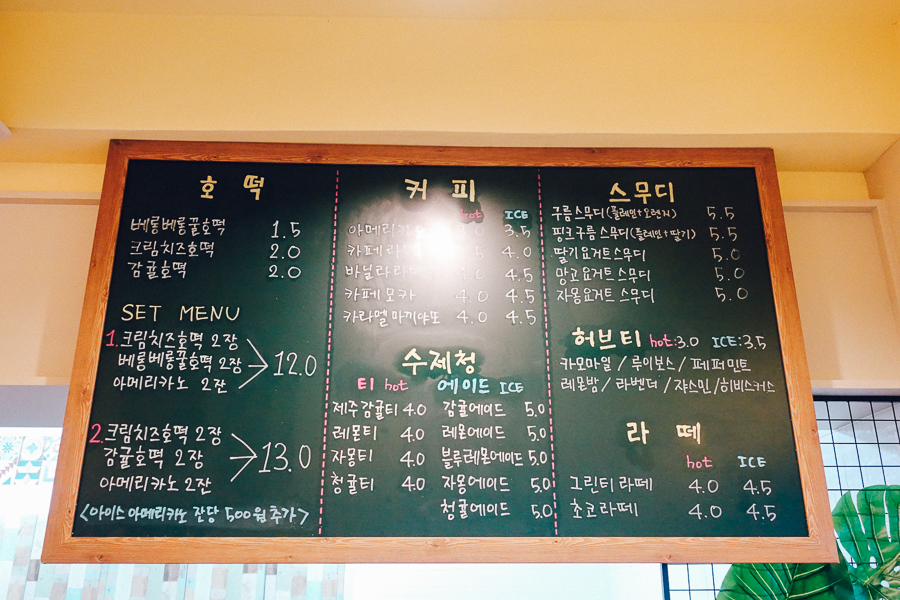 호떡
베롱베롱꿀호떡 1.5
크림치즈호떡 2.0
감귤호떡 2.0
SET MENU
1. 크림치즈호떡 2장
베롱베롱꿀호떡 2장
아메리카노 2잔
12.0
2. 크림치즈호떡 2장
감귤호떡 2장
아메리카노 2잔
13.0
<아이스 아메리카노 잔당 500원 추가>
커피
hot ICE
아메리카 3.5
카페라 4.0
바닐라라 4.5
카페모카 4.0 4.5
카라멜마끼야또 4.0 4.5
수제청
티 hot
제주감귤티 4.0
레몬티 4.0
자몽티 4.0
청귤티 4.0
에이드 ICE
감귤에이드 5.0
레몬에이드 5.0
블루레몬에이드 5.0
자몽에이드 5.0
청귤에이드 5.0
스무디
구름스무디(플레인+오렌지) 5.5
핑크구름스무디(플레인+딸기) 5.5
딸기요거트스무디 5.0
망고요거트스무디 5.0
자몽요거트스무디 5.0
허브티 hot:3.0 ICE:3.5
카모마일 / 루이보스 / 페퍼민트
레몬밤 / 라벤더 / 쟈스민 / 히비스커스
라떼
hot ICE
그린티라떼 4.0 4.5
초코라떼 4.0 4.5